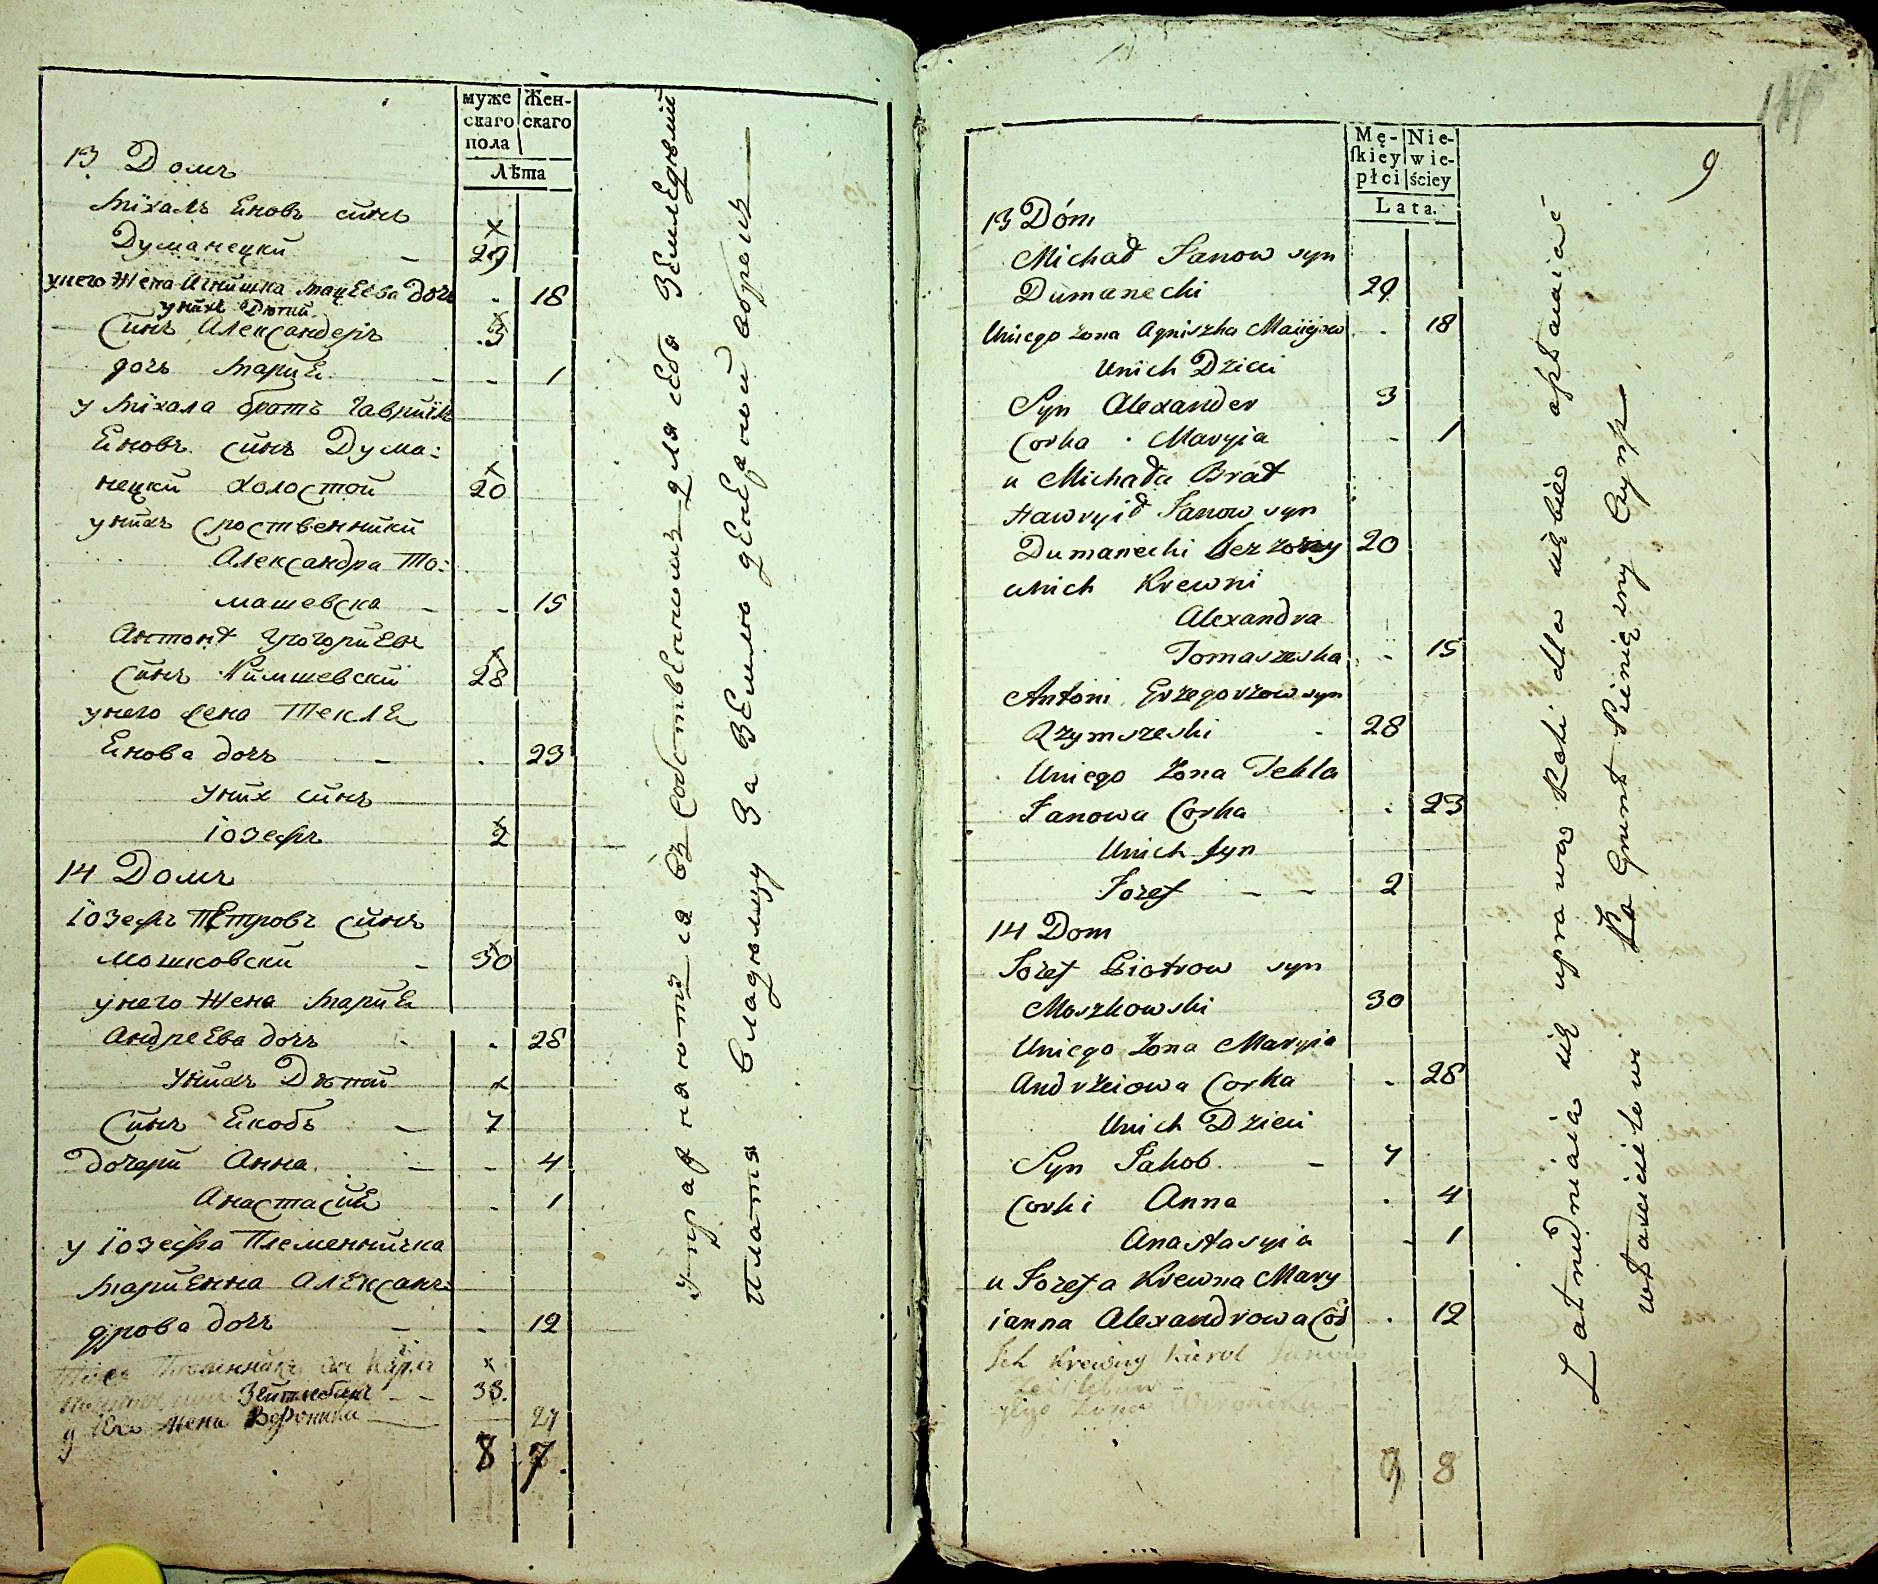 муже
скаго
пола
Жен-
скаго
Лѣта
13 Домъ
Михалъ Яновъ синъ
Думанецки - 29
унего Жена Агнишка Мацеева дочь . 18
унихъ Дѣти
Синъ Александеръ . 3
дочь Марие - - 1
у Михала братъ Гаврийлъ
Яновъ синъ Дума:
нецки холостой 20
унихъ сроственники
Александра То:
машевска - - 15
Антонъ Григориевъ
Синъ Римшевский 28
унего жена Текле
Янова дочь - . 23
унихъ синъ
Iозефъ 2
14 Домъ
Iозефъ Петровъ синъ
Мошковски - 30
унего Жена Марие
Андреева дочь - . 28
унихъ Дѣтий
Синъ Якобъ - 7
Дочери Анна - - 4
Анастасия . 1
у Iозефа Племенничка
Мариенна Алексан:
дрова дочь - . 12
Племенникъ
Зейтлебенъ - - 33.
Его жена Вероника 27
8 7
упражняются въ собственномъ для себя земледѣлий
платя владѣльцу за землю денежной оброкъ
9
Mę-
skiey
płci
Nie-
wie-
ściey
Lata.
13 Dóm
Michał Janow syn
Dumanecki 29
Uniego Zona Agniszka Macijow . 18
Unich Dzieci
Syn Alexander 3
Corka . Maryia - 1
u Michała Brat
Hawryił Janow syn
Dumanecki bez zony 20
unich Krewni
Alexandra
Tomaszeska . - 15
Antoni Grzegorzow syn
Rzymszeski - 28
Uniego Zona Tekla
Janowa Corka . 23
Unich Syn
Jozef - - 2
14 Dom
Jozef Piotrow syn
Moszkowski 30
Uniego Zona Maryia
Andrzeiowa Corka . 28
Unich Dzieci
Syn Jakob - 7
Corki Anna . 4
Anastasyia . 1
u Jozefa Krewna Mary
ianna Alexandrowa Cor . 12
Ich Krewny Karol Janow
Jego Zona Weronika
9 8
Zatrudniaia się uprawą Roli dla siebie opłacaiąc
właścicielowi Za Grunt Pieniężny Czynsz